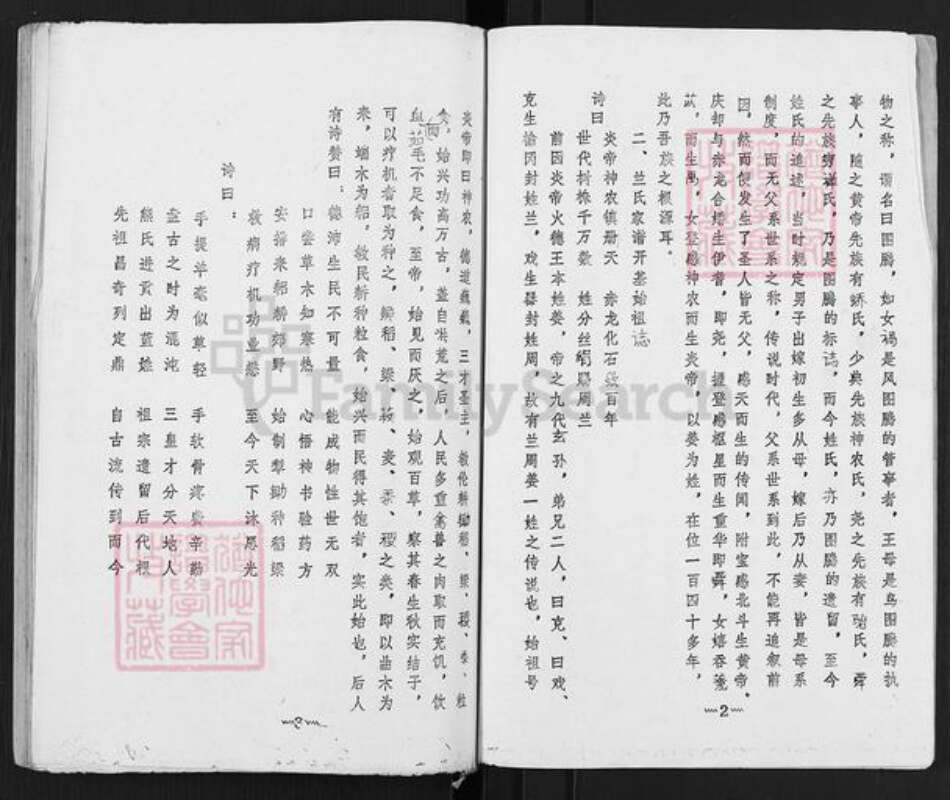 物之称，谓名曰图腾，如女娲是风图腾的管事者，王母是鸟图腾的执
事人，随之黄帝先族有蟜氏，少典先族神农氏，尧之先族有骀氏，舜
之先族穷蝉氏，乃是图腾的标誌，而今姓氏，亦乃图腾的遗留，至今
姓氏的追述，当时规定男子出嫁初生多从母，嫁后乃从妻，皆是母系
制度，而无父系世系之称，传说时代，父系世系到此，不能再追叙前
因，然而便发生了圣人皆无父，感天而生的传闻，附宝感北斗生黄帝。
庆却与赤龙合婚生伊耆，即尧，握登感枢星而生重华即舜，女嬉吞薏
苡，而生禹，女登感神农而生炎帝，以姜为姓，在位一百四十多年，
此乃吾族之根源耳。
二、兰氏家谱开基始祖誌
诗曰
炎帝神农镇 天 赤龙化石 百年
世代树株千万数 姓分丝绸赐周兰
前因炎帝火德王本姓姜，帝之九代玄孙，弟兄二人，曰克、曰戏、
克生 冈封姓兰，戏生 封姓周，故有兰周姜一姓之传说也，始祖号
2
炎帝即曰神农，德道巍巍，三才圣主，教伦耕 稻、粱、稷、黍、粒
食，始兴功高万古，盖自洪荒之后，人民多重禽兽之肉取而充饥，饮
血茹毛不足食，至帝，始见而厌之，始观百草，察其春生秋实结子，
可以疗机者取为种之，粳稻、粱、菽、麦、黍、稷之类，即以曲木为
来，端木为耜，教民耕种粒食，始兴而民得其饱者，实此始也，后人
有诗赞曰：德沛生民不可量 能成物性世无双
口尝草木知寒热 心悟神书验药方
安排来耜耕郊野 始制犁锄种稻粱
救病疗机功显 至今天下沐恩光
诗曰：
手提羊毫似草轻 手软骨疼费辛勤
盘古之时为混沌 三皇才分天地人
熊氏进贡出蓝姓 祖宗遗留后代根
先祖昌奇列定鼎 自古流传到而今
3
FamilySearch